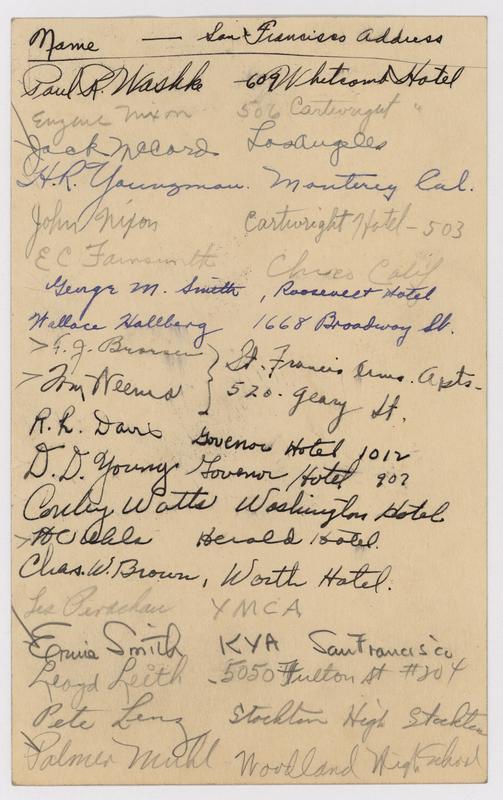 Name — San Francisco Address
Paul R. Washke 609 Whitcomb Hotel
Eugene Nixon 506 Cartwright "
Jack McCord Los Angeles
H.R. Youngman. Monterey Cal.
John Nixon Cartwright Hotel - 503
E C Farnsworth Chico Calif
George M. Smith, Roosevelt Hotel
Wallace Hallberg 1668 Broadway St.
St. Francis Arms. Apts-
Wm Neemd 520. Geary St.
R. L. Davis Govenor Hotel 1012
D. D. Young Govenor Hotel 902
Conley Watts Washington Hotel
Herald Hotel.
Chas. W. Brown, Worth Hotel.
Les YMCA
Ernie Smith KYA San Francisco
Lloyd Leith -5050 Fulton St #204
Pete Lenz Stockton High Stockton
Palmer Muhl Woodland High School